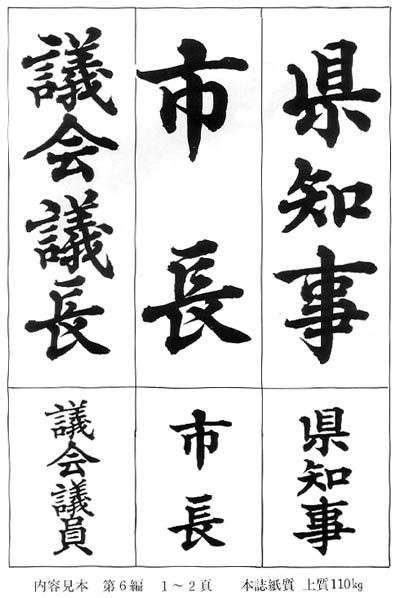 県知事
市長
議会議長
県知事
市長
議会議員
内容見本 第6編 1～2頁 本誌紙質 上質110kg